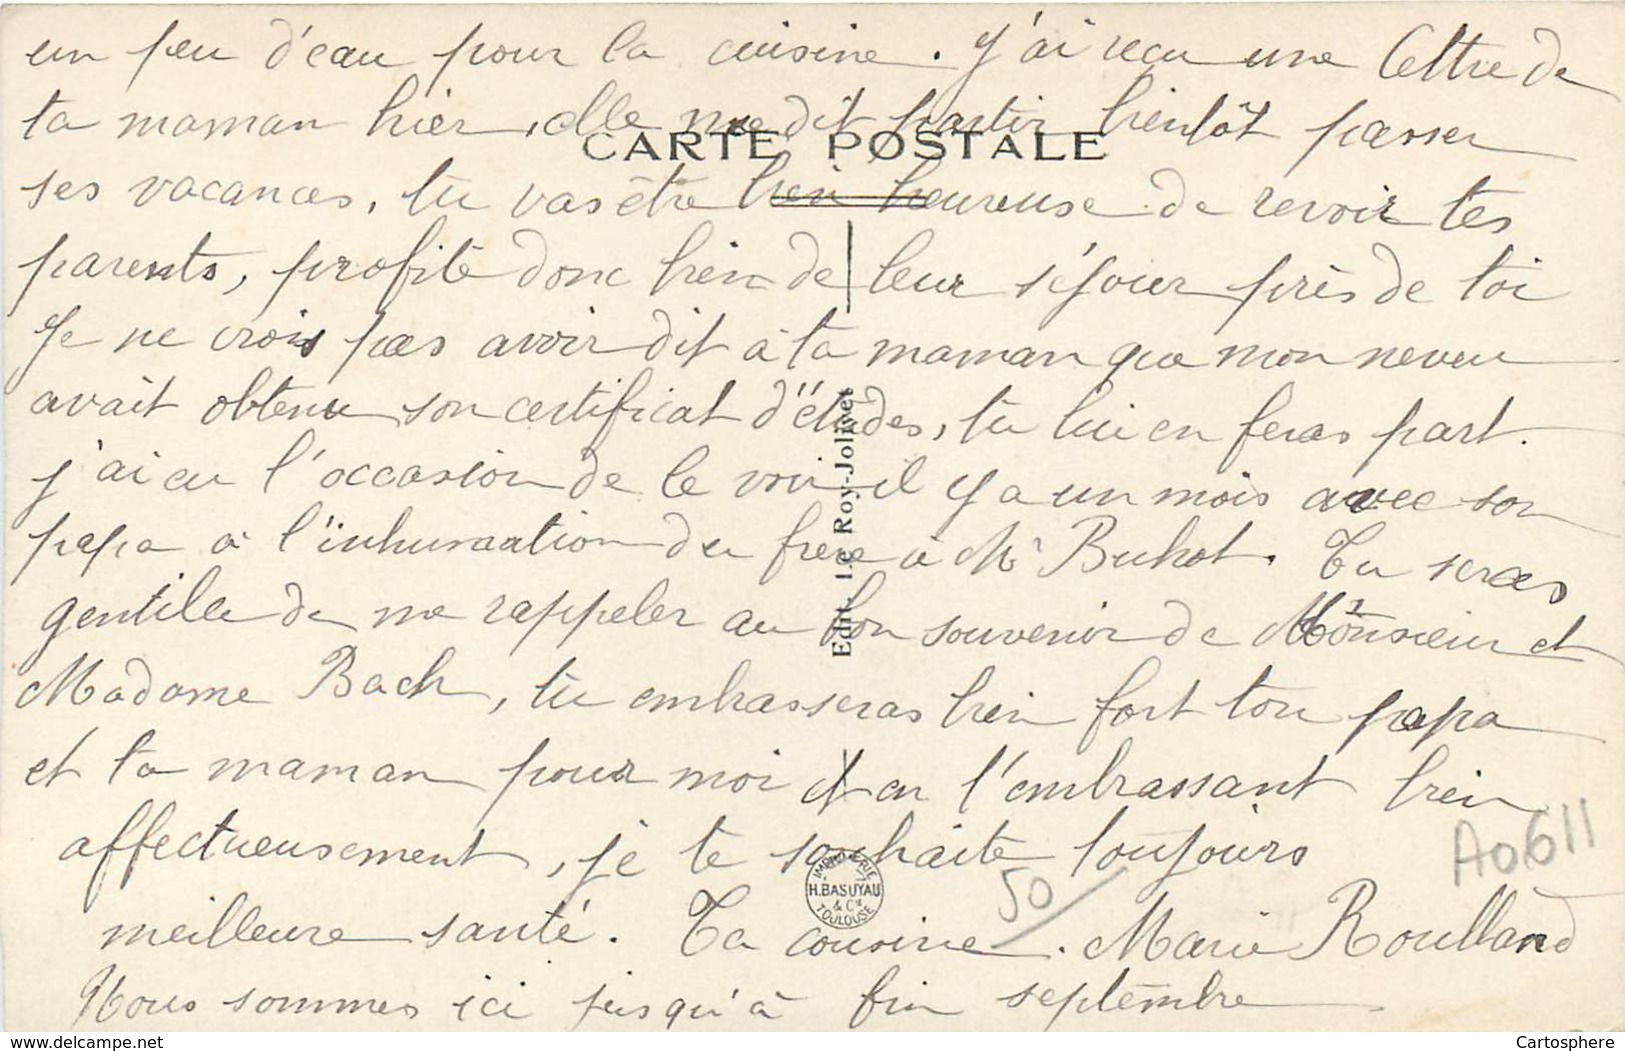 un peu d'eau pour la cuisine. J'ai reçu une lettre de
ta maman hier, elle me dit partir bientôt passer
CARTE POSTALE
ses vacances, tu vas être bien heureuse de revoir tes
parents, profite donc bien de leur séjour près de toi
Je ne crois pas avoir dit à ta maman que mon neveu
avait obtenu son certificat d'études, tu lui en feras part.
j'ai eu l'occasion de le voir il y a un mois avec son
papa à l'inhumation du frère à Mr Buhot. Tu seras
gentille de me rappeler au bon souvenir de Monsieur et
Madame Bach, tu embrasseras bien fort ton papa
et ta maman pour moi et en l'embrassant bien
affectueusement, je te souhaite toujours
meilleure santé. Ta cousine. Marie Roulland
Nous sommes ici jusqu'à fin septembre
Edit. Le Roy-Jolivet
IMPRIMERIE
H. BASUYAU
& Cie
TOULOUSE
50
A0611
www.delcampe.net
Cartosphere